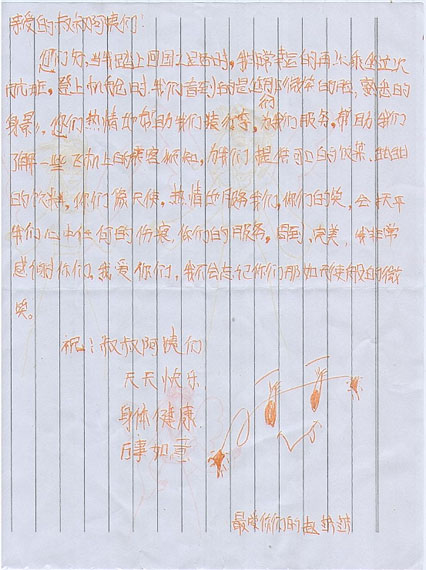 亲爱的叔叔阿姨们:
您们好,当我踏上回国之路时,我非常幸运的再次乘坐这次
航班,登上机舱时,我们看到的是您们微笑的脸,熟悉的
身影。您们热情地帮助我们接行李,为我们服务,帮助我们
了解一些飞机上的乘客须知,为我们提供可口的饭菜、甜甜
的饮料,你们像天使,热情地服务我们,你们的笑,会抚平
我们心中任何的伤痕,你们的服务,周到,完美,我非常
感谢你们,我爱你们,我不会忘记你们那如天使般的微
笑。
祝:叔叔阿姨们
天天快乐
身体健康
百事如意
最爱你们的赵